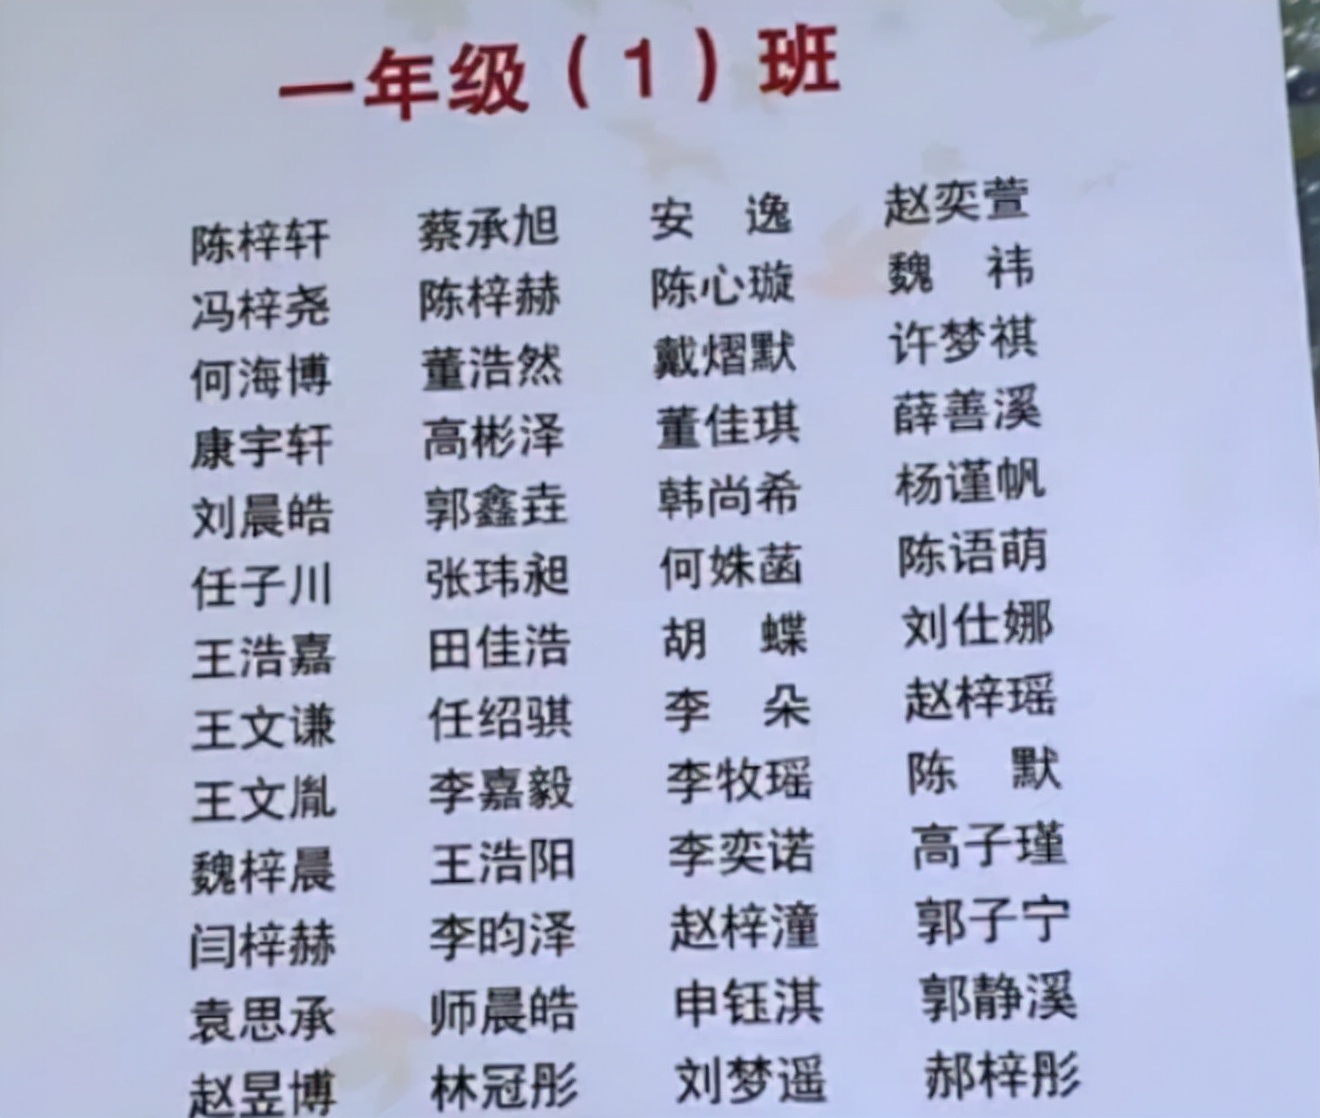 一年级（1）班
陈梓轩 蔡承旭 安 逸 赵奕萱
冯梓尧 陈梓赫 陈心璇 魏 祎
何海博 董浩然 戴熠默 许梦祺
康宇轩 高彬泽 董佳琪 薛善溪
刘晨皓 郭鑫垚 韩尚希 杨谨帆
任子川 张玮昶 何姝菡 陈语萌
王浩嘉 田佳浩 胡 蝶 刘仕娜
王文谦 任绍骐 李 朵 赵梓瑶
王文胤 李嘉毅 李牧瑶 陈 默
魏梓晨 王浩阳 李奕诺 高子瑾
闫梓赫 李昀泽 赵梓潼 郭子宁
袁思承 师晨皓 申钰淇 郭静溪
赵昱博 林冠彤 刘梦遥 郝梓彤